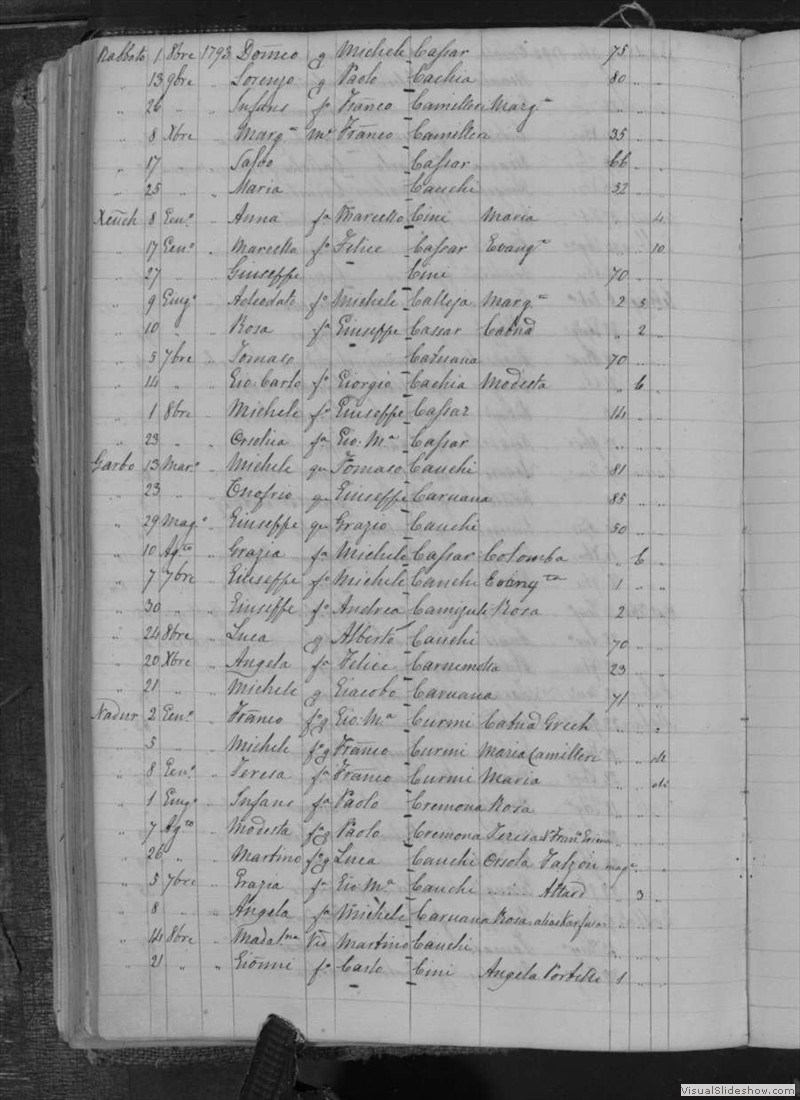 Rabbato 1 8bre 1793 Domeo g Michele Cassar 75 " "
" 13 9bre " Lorenzo g Paolo Cachia 80 " "
" 26 " " Infans fo Franco Camilleri Margta " " "
" 8 Xbre " Margta Me Franco Camilleri 35 " "
" 17 " " Salvo Cassar 66 " "
" 25 " " Maria Cauchi 32 " "
Xeuch 8 Geno " Anna fa Marcello Cini Maria " " 4
" 17 Geno " Marcello fo Felice Cassar Evangta " " 10
" 27 " Giuseppe Cini 70 " "
" 9 Giugo " Adeodato fo Michele Calleja Margta 2 5 "
" 10 " " Rosa fa Giuseppe Cassar Catna " 2 "
" 5 7bre " Tomaso Caruana 70 " "
" 14 " " Gio Carlo fo Giorgio Cachia Modesta " 6 "
" 1 8bre " Michele fo Giuseppe Cassar 14 " "
" 23 " " Orsolica fa Gio Ma Cassar " " "
Garbo 13 Maro " Michele qu Tomaso Cauchi 81 " "
" 23 " " Onofrio qu Giuseppe Caruana 85 " "
" 29 Mago " Giuseppe qu Grazio Cauchi 50 " "
" 10 Agto " Grazia fa Michele Cassar Colomba " 6 "
" 7 7bre " Giuseppe fo Michele Cauchi Evangta 1 " "
" 30 " " Giuseppe fo Andrea Camizuli Rosa 2 " "
" 24 8bre " Luca g Alberto Cauchi 70 " "
" 20 Xbre " Angela fa Felice 23 " "
" 21 " " Michele g Giacobo Caruana 71 " "
Nadur 2 Geno " Franco fo g Gio Ma Curmi Catna Grech " " "
" 5 " Michele fo g Franco Curmi Maria Camilleri " "
" 8 Geno " Teresa fa Franco Curmi Maria " "
" 1 Giugo " Infans fa Paolo Cremona Rosa " " "
" 7 Agto " Modesta fa g Paolo Cremona Teresa " "
" 26 " " Martino fo g Luca Cauchi Orsola Falzon " "
" 5 7bre " Grazia fa Gio Ma Cauchi ...... Attard " 3 "
" 8 " Angela fa Michele Caruana Rosa alias " " "
" 14 8bre " Madalna Vid Martino Cauchi " " "
" 21 " " Gionni fo Carlo Cini Angela Portelli 1 " "
VisualSlideshow.com